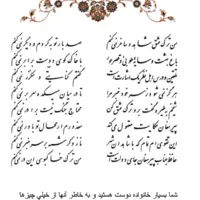 من ترک عشق شاهد و ساغر نمی کنم صد بار توبه کردم و دیگر نمی کنم
باغ بهشت و سایه طوبی و قصر حور با خاک کوی دوست برابر نمی کنم
تلقین و درس اهل نظر یک اشارت است گفتم کنایتی و مکرر نمی کنم
هرگز نمی شود ز سر خود خبر مرا تا در میان میکده سر بر نمی کنم
شیخم به طیره گفت برو ترک عشق کن محتاج جنگ نیست برادر نمی کنم
پیر مغان حکایت معقول می کند معذورم ار محال تو باور نمی کنم
این تقویم تمام که با شاهدان شهر ناز و کرشمه بر سر منبر نمی کنم
حافظ جناب پیر مغان جای دولت است من ترک خاک بوسی این در نمی کنم
شما بسیار خانواده دوست هستید و به خاطر آنها از خیلی چیزها